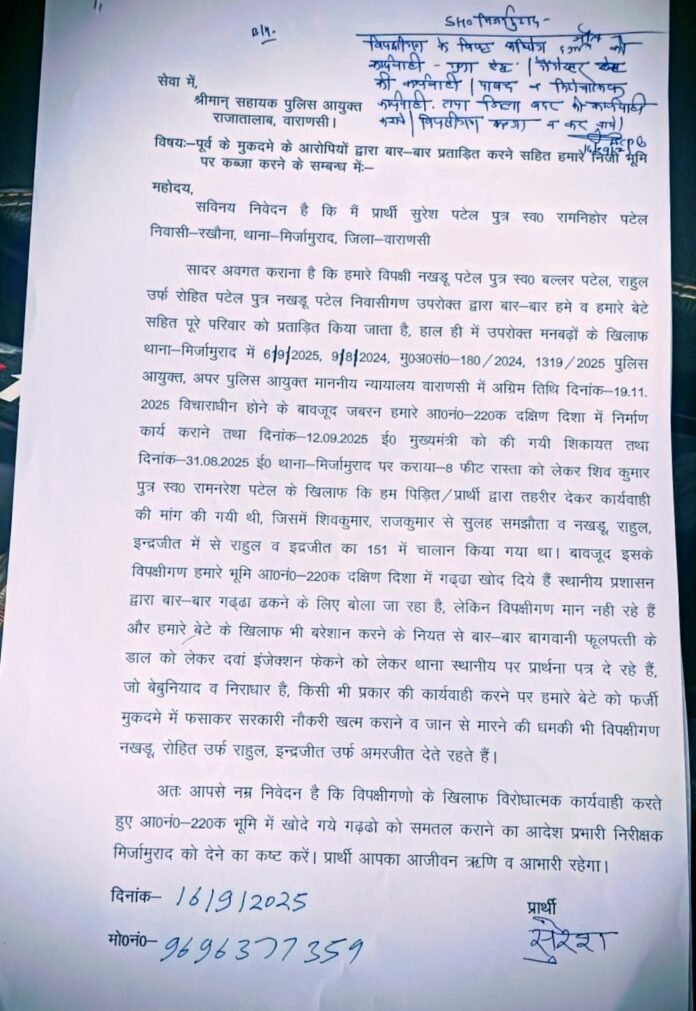 SHO मिर्जामुराद-
विपक्षीगण के विरुद्ध
कार्यवाही - गुण्डा एक्ट /
की कार्यवाही / पाबंद
कार्यवाही. तथा जिला बदर की कार्यवाही
करावें / विपक्षीगण कब्जा न कर पाये।
ACP B
सेवा में,
श्रीमान् सहायक पुलिस आयुक्त
राजातालाब, वाराणसी।
विषयः–पूर्व के मुकदमे के आरोपियों द्वारा बार–बार प्रताड़ित करने सहित हमारे निजी भूमि
पर कब्जा करने के सम्बन्ध में:–
महोदय,
सविनय निवेदन है कि मैं प्रार्थी सुरेश पटेल पुत्र स्व0 रामनिहोर पटेल
निवासी–रखौना, थाना–मिर्जामुराद, जिला–वाराणसी
सादर अवगत कराना है कि हमारे विपक्षी नखडू पटेल पुत्र स्व0 बल्लर पटेल, राहुल
उर्फ रोहित पटेल पुत्र नखडू पटेल निवासीगण उपरोक्त द्वारा बार–बार हमे व हमारे बेटे
सहित पूरे परिवार को प्रताड़ित किया जाता है, हाल ही में उपरोक्त मनबढ़ों के खिलाफ
थाना–मिर्जामुराद में 6/9/2025, 9/8/2024, मु0अ0सं0–180/2024, 1319/2025 पुलिस
आयुक्त, अपर पुलिस आयुक्त माननीय न्यायालय वाराणसी में अग्रिम तिथि दिनांक–19.11.
2025 विचाराधीन होने के बावजूद जबरन हमारे आ0नं0–220क दक्षिण दिशा में निर्माण
कार्य कराने तथा दिनांक–12.09.2025 ई0 मुख्यमंत्री को की गयी शिकायत तथा
दिनांक–31.08.2025 ई0 थाना–मिर्जामुराद पर कराया–8 फीट रास्ता को लेकर शिव कुमार
पुत्र स्व0 रामनरेश पटेल के खिलाफ कि हम पिड़ित/प्रार्थी द्वारा तहरीर देकर कार्यवाही
की मांग की गयी थी, जिसमें शिवकुमार, राजकुमार से सुलह समझौता व नखडू, राहुल,
इन्द्रजीत में से राहुल व इद्रजीत का 151 में चालान किया गया था। बावजूद इसके
विपक्षीगण हमारे भूमि आ0नं0–220क दक्षिण दिशा में गढ्ढा खोद दिये हैं स्थानीय प्रशासन
द्वारा बार–बार गढ्ढा ढकने के लिए बोला जा रहा है, लेकिन विपक्षीगण मान नही रहे हैं
और हमारे बेटे के खिलाफ भी बरेशान करने के नियत से बार–बार बागवानी फूलपत्ती के
डाल को लेकर दवां इंजेक्शन फेकने को लेकर थाना स्थानीय पर प्रार्थना पत्र दे रहे हैं,
जो बेबुनियाद व निराधार है, किसी भी प्रकार की कार्यवाही करने पर हमारे बेटे को फर्जी
मुकदमे में फसाकर सरकारी नौकरी खत्म कराने व जान से मारने की धमकी भी विपक्षीगण
नखडू, रोहित उर्फ राहुल, इन्द्रजीत उर्फ अमरजीत देते रहते हैं।
अतः आपसे नम्र निवेदन है कि विपक्षीगणो के खिलाफ विरोधात्मक कार्यवाही करते
हुए आ0नं0–220क भूमि में खोदे गये गढ्ढो को समतल कराने का आदेश प्रभारी निरीक्षक
मिर्जामुराद को देने का कष्ट करें। प्रार्थी आपका आजीवन ऋणि व आभारी रहेगा।
दिनांक– 16/9/2025
प्रार्थी
मो0नं0– 9696377359
सुरेश